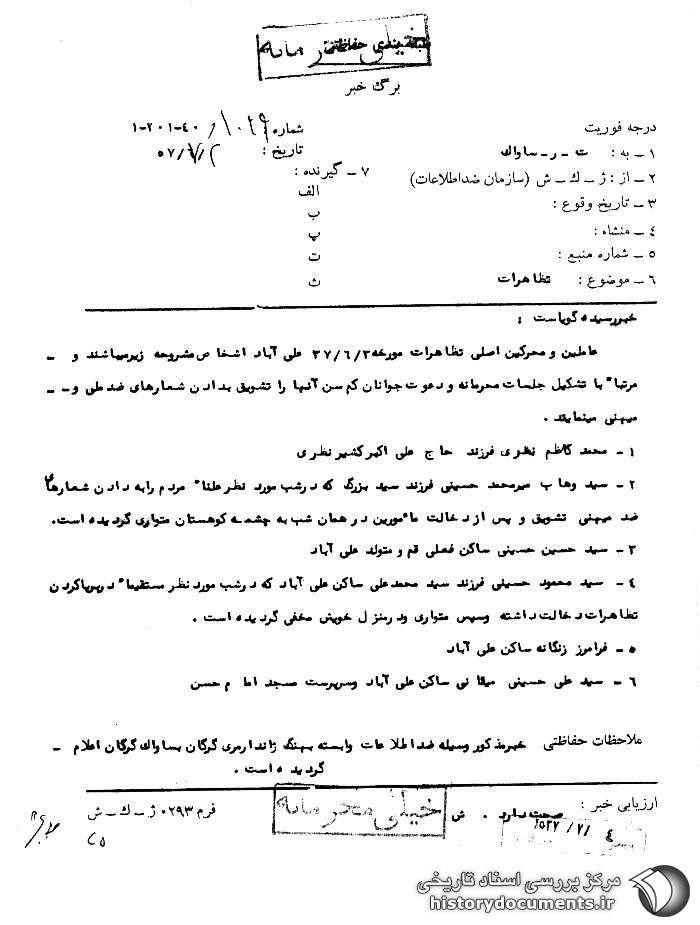 خیلی محرمانه
طبقه‌بندی حفاظتی
برگ خبر
درجه فوریت
شماره ۴۰-۲۰۱-۱
۱ ـ به : ت ـ ر ـ ساواک
تاریخ : ۵۷/
۲ ـ از : ژ ـ ک ـ ش (سازمان ضداطلاعات)
۷ ـ گیرنده :
۳ ـ تاریخ وقوع :
الف
۴ ـ منشاء :
ب
پ
۵ ـ شماره منبع :
ت
۶ ـ موضوع : تظاهرات
ث
خبر رسیده گویاست :
عاملین و محرکین اصلی تظاهرات مورخه ۳۷/۶/۲ علی آباد اشخاص مشروحه زیر میباشند و ـ
مرتبا" با تشکیل جلسات محرمانه و دعوت جوانان کم سن آنها را تشویق بدادن شعارهای ضد ملی و ـ ـ
میهنی مینمایند .
۱ ـ محمد کاظم نظری فرزند حاج علی اکبر کشیر نظری
۲ ـ سید وهاب میرمحمد حسینی فرزند سید بزرگ که در شب مورد نظر علنا" مردم را به دادن شعارهای
ضد میهنی تشویق و پس از دخالت مأمورین در همان شب به چشمه کوهستان متواری گردیده است.
۳ ـ سید حسین حسینی ساکن فعلی قم و متولد علی آباد
۴ ـ سید محمود حسینی فرزند سید محمدعلی ساکن علی آباد که در شب مورد نظر مستقیما" در برپا کردن
تظاهرات دخالت داشته وسپس متواری ودرمنزل خویش مخفی گردیده است .
۵ ـ فرامرز زنگانه ساکن علی آباد
۶ ـ سید علی حسینی میقانی ساکن علی آباد وسرپرست مسجد امام حسن
ملاحظات حفاظتی خبر مذکور وسیله ضد اطلاعات وابسته بهنگ ژاندارمری گرگان بساواک گرگان اعلام ـ
گردیده است .
ارزیابی خبر : صحت دارد . ش
خیلی محرمانه
فرم ۰۲۹۳ ژ ـ ک ـ ش
مرکز بررسی اسناد تاریخی
historydocuments.ir